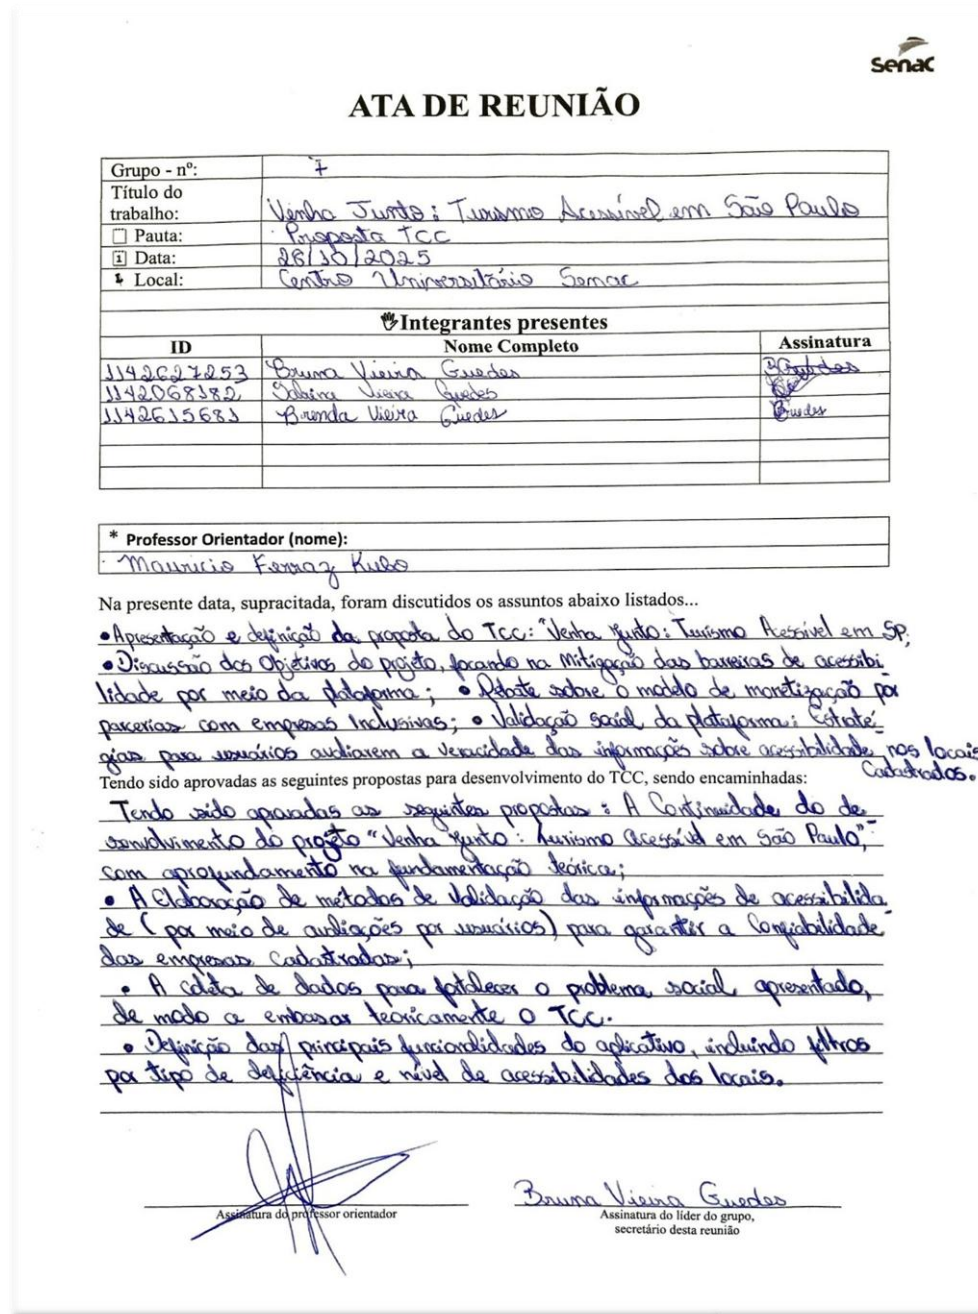 Senac
ATA DE REUNIÃO
Grupo - nº: 7
Título do
trabalho: Venha Junto: Turismo Acessível em São Paulo
Pauta: Proposta TCC
Data: 28/10/2025
Local: Centro Universitário Senac
Integrantes presentes
ID Nome Completo Assinatura
1142627253 Bruna Vieira Guedes
1142068182 Sabrina Vieira Guedes
1142615681 Brenda Vieira Guedes Guedes
* Professor Orientador (nome):
Mauricio Ferraz Kubo
Na presente data, supracitada, foram discutidos os assuntos abaixo listados...
• Apresentação e definição da proposta do TCC: "Venha Junto: Turismo Acessível em SP;
• Discussão dos Objetivos do projeto, focando na Mitigação das barreiras de acessibi
lidade por meio da plataforma; • Debate sobre o modelo de monetização por
parcerias com empresas Inclusivas; • Validação social da plataforma: Estraté
gias para usuários avaliarem a veracidade das informações sobre acessibilidade nos locais
Cadastrados.
Tendo sido aprovadas as seguintes propostas para desenvolvimento do TCC, sendo encaminhadas:
Tendo sido aprovadas as seguintes propostas: A Continuidade do de
senvolvimento do projeto "Venha Junto: Turismo Acessível em São Paulo",
com aprofundamento na fundamentação teórica;
• A Elaboração de métodos de Validação das informações de acessibilida
de (por meio de avaliações por usuários) para garantir a Confiabilidade
das empresas Cadastradas;
• A coleta de dados para fortalecer o problema social apresentado,
de modo a embasar teoricamente o TCC.
• Definição das principais funcionalidades do aplicativo, incluindo filtros
por tipo de deficiência e nível de acessibilidades dos locais.
Assinatura do professor orientador
Bruna Vieira Guedes
Assinatura do líder do grupo,
secretário desta reunião